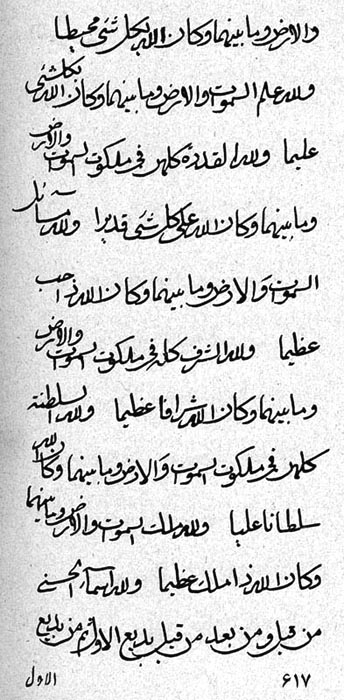 والارض وما بينهما وكان الله بكل شئ محيطا
ولله علم السموت والارض وما بينهما وكان الله بكل شئ
عليما ولله القدرة كلهن فى ملكوت السموت والارض
وما بينهما وكان الله على كل شئ قديرا ولله مسائل
السموت والارض وما بينهما وكان الله ذا حب
عظيما ولله الشرف كله فى ملكوت السموت والارض
وما بينهما وكان الله شرافا عظيما ولله السلطنة
كلهن فى ملكوت السموت والارض وما بينهما وكان الله
سلطانا عليا ولله ملك السموت والارض وما بينهما
وكان الله ذا ملك عظيما ولله اسمآء الحسنى
من قبل ومن بعد من قبل بديع الاول ثم من بديع
٦١٧ الاول